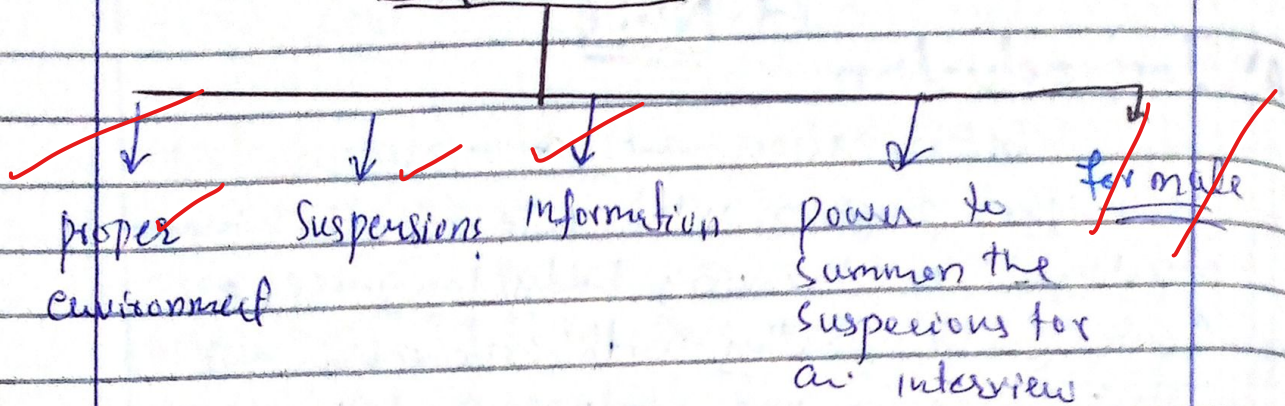 proper
environment
Suspensions
Information
power to
summon the
Suspecious for
an interview.
for male